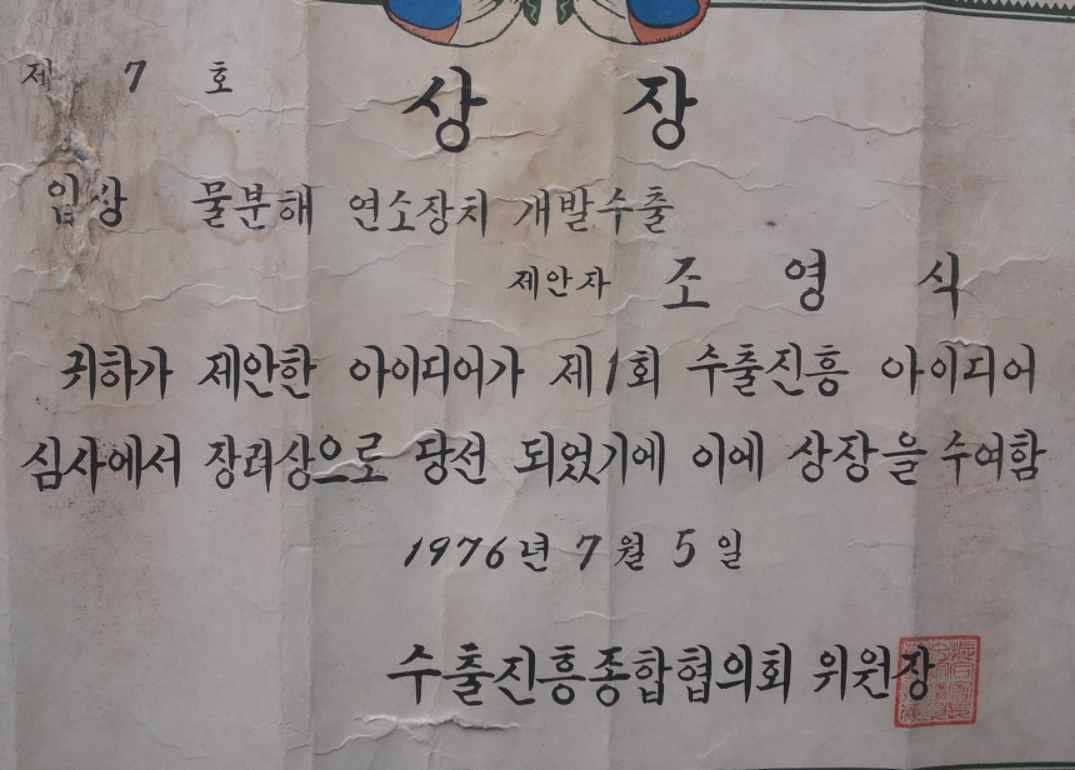 제 7 호
상 장
입상 물분해 연소장치 개발수출
제안자 조 영 식
귀하가 제안한 아이디어가 제1회 수출진흥 아이디어
심사에서 장려상으로 당선 되었기에 이에 상장을 수여함
1976년 7월 5일
수출진흥종합협의회 위원장